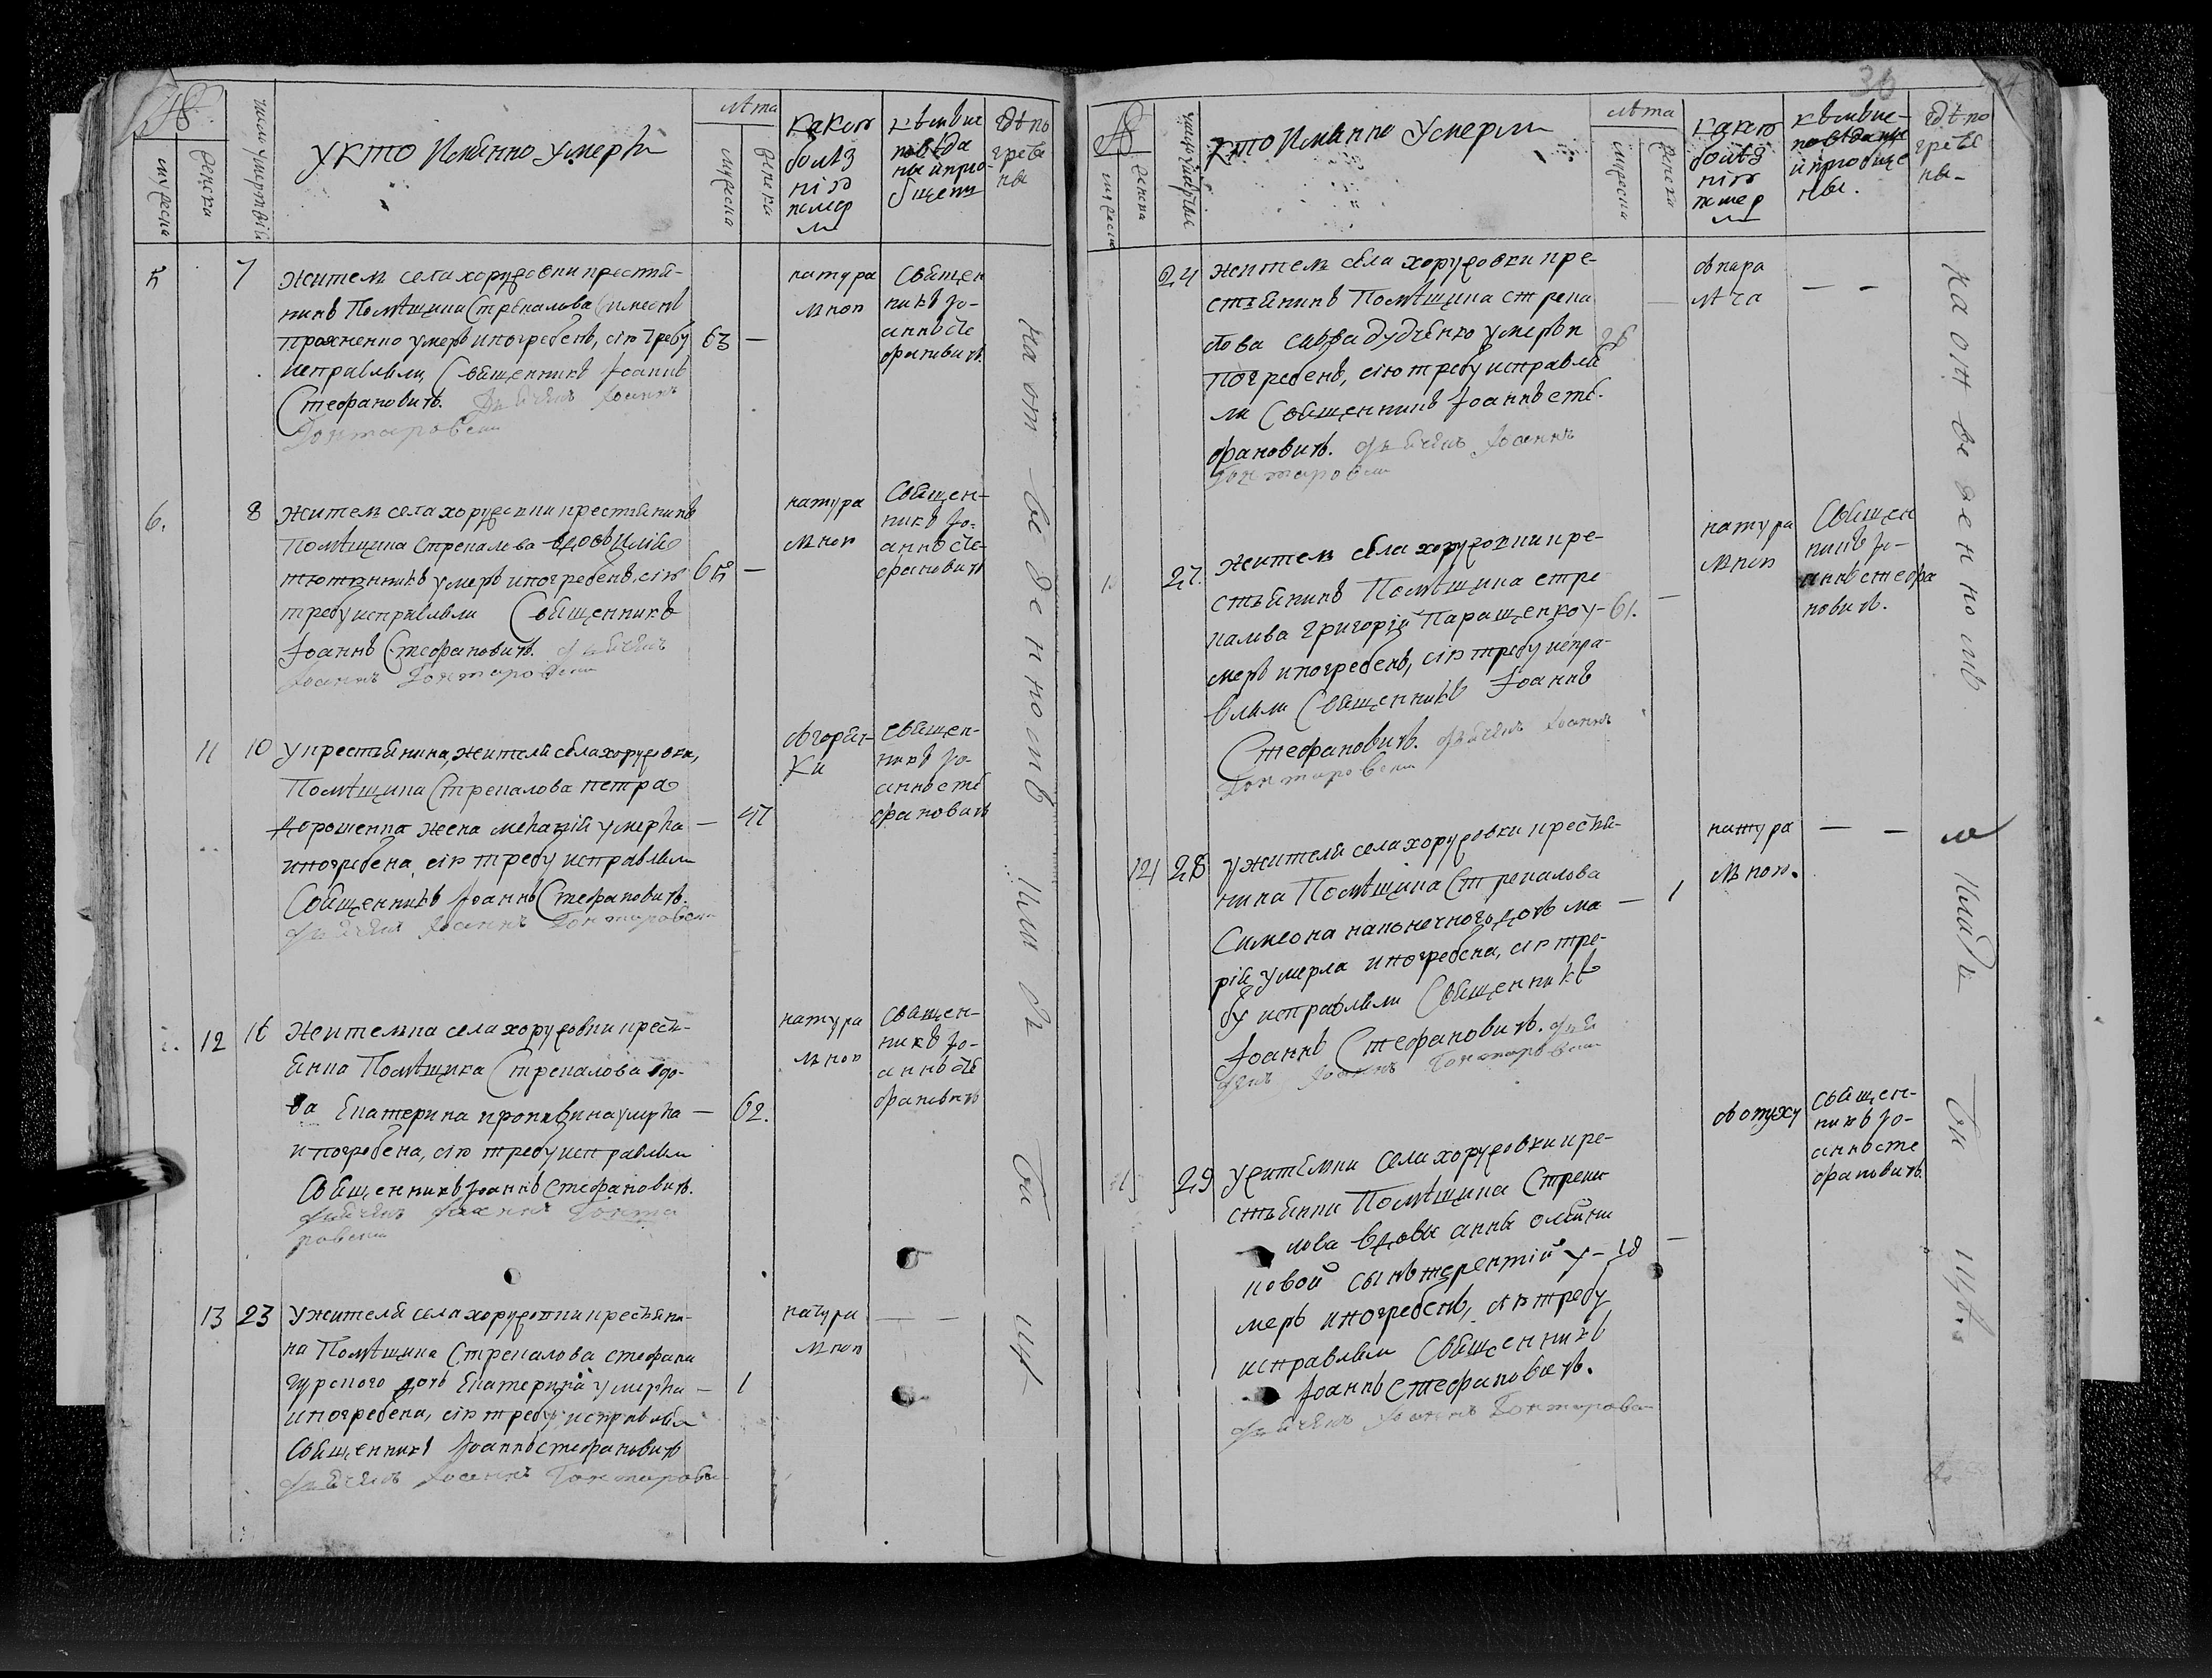 №
мужеска
женска
число умертвій
У кто Имѣнно умерлъ
лѣта
мужеска
женска
какою
болѣз
нію
помер
ли
кѣмъ ис
повѣда
ны и прио
бщены
гдѣ по
гребе
ны
5
7
Житель села хоружовки крестья-
нинъ Помѣщика Стрекалова Симеонъ
умеръ и погребенъ, сію требу
исправляли, Священникъ Іоаннъ
Стефановичъ. Дьячекъ Іоаннъ
Гонтаровски
63
—
натура
льною
Священ
никъ Іо-
аннъ Сте
фановичъ
6.
8
Житель села хоружовки крестьянинъ
Помѣщика Стрекалова
умеръ и погребенъ, сію
требу исправляли Священникъ
Іоаннъ Стефановичъ. дьячекъ
Іоаннъ Гонтаровски
65
—
натура
льною
Священ-
никъ Іо-
аннъ Сте-
фановичъ
11
10
У крестьянина, жителя села хоружовки,
Помѣщика Стрекалова петра
дорошенка жена умерла
и погребена, сію требу исправляли
Священникъ Іоаннъ Стефановичъ.
дьячекъ Іоаннъ Гонтаровски
—
47
ѿ горяч-
ки
священ-
никъ Іо-
аннъ Сте
фановичъ
12
16
Жительна села хоружовки кресть-
янка Помѣщика Стрекалова вдо-
ва Екатерина умерла
и погребена, сію требу исправляли
Священникъ Іоаннъ Стефановичъ.
дьячекъ Іоаннъ Гонта
ровски
—
62.
натура
льною
священ-
никъ Іо-
аннъ Сте
фановичъ
13
23
У жителя села хоружовки крестьяни-
на Помѣщика Стрекалова стефана
гурского дочь Екатерина умерла
и погребена, сію требу исправляли
Священникъ Іоаннъ стефановичъ
дьячекъ Іоаннъ Гонтаровски
—
1
натура
льною
— —
на от ве де н но мъ кла дь би щѣ
36
№
мужеска
женска
число умертвія
Кто Имянно Умерли
лѣта
мужеска
женска
какою
болѣз
нію
помер
ли
кѣмъ ис-
повѣданы
и приобще
ны.
гдѣ по
гребе
ны-
24
житель села хоружовки кре-
стьянинъ Помѣщика стрека
лова савва дудченко умеръ и
погребенъ, сію требу исправля
ли Священникъ Іоаннъ сте-
фановичъ. дьячекъ Іоаннъ
Гонтаровски
—
— —
27.
житель села хоружовки кре-
стьянинъ Помѣщика стре
калова григорій Паращенко у-
меръ и погребенъ, сію требу испра-
вляли Священникъ Іоаннъ
Стефановичъ. дьячекъ Іоаннъ
Гонтаровски
61.
—
натура
льною
Священ
никъ Іо-
аннъ стефа
новичъ.
14
28
У жителя села хоружовки крестья-
нина Помѣщика Стрекалова
Симеона наконечного дочь ма
рія умерла и погребена, сію тре-
бу исправляли Священникъ
Іоаннъ Стефановичъ. дья
чекъ Іоаннъ Гонтаровски
—
1
натура
льною.
— —
29
У жителки села хоружовки кре-
стьянки Помѣщика Стрека
лова вдовы анны
новой сынъ терентій у-
меръ и погребенъ, сію требу
исправляли Священникъ
Іоаннъ Стефановичъ.
дьячекъ Іоаннъ Гонтаровски
18
—
священ-
никъ Іо-
аннъ сте
фановичъ.
на от ве де н но мъ кла дь би щѣ